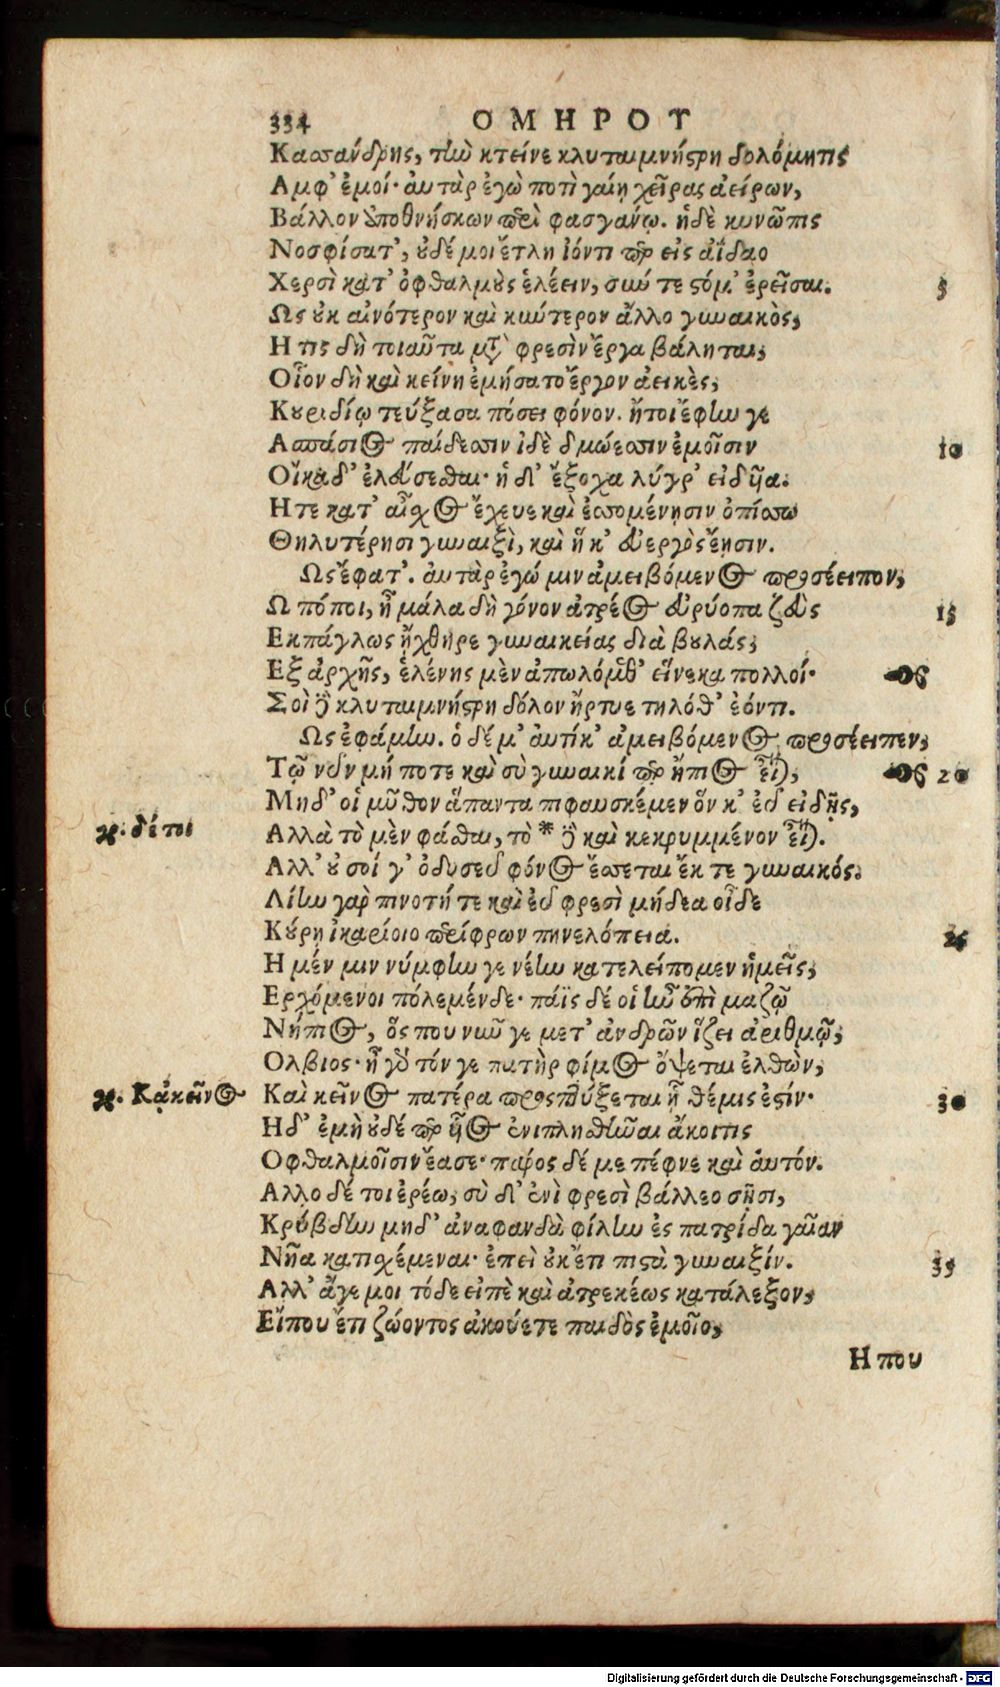 334 ΟΜΗΡΟΥ
Κασσάνδρης, τὴν κτεῖνε κλυταιμνήστρη δολόμητις
Αμφ' ἐμοί· αὐτὰρ ἐγὼ ποτὶ γαίῃ χεῖρας ἀείρων,
Βάλλον ἀποθνήσκων περὶ φασγάνῳ. ἡ δὲ κυνῶπις
Νοσφίσατ', οὐδέ μοι ἔτλη ἰόντι περ εἰς ἀΐδαο
Χερσὶ κατ' ὀφθαλμοὺς ἑλέειν, σύν τε στόμ' ἐρεῖσαι. 5
Ως οὐκ αἰνότερον καὶ κύντερον ἄλλο γυναικὸς,
Η τις δὴ τοιαῦτα μετὰ φρεσὶν ἔργα βάληται,
Οἷον δὴ καὶ κείνη ἐμήσατο ἔργον ἀεικὲς,
Κουριδίῳ τεύξασα πόσει φόνον. ἤτοι ἔφην γε
Ασπάσιος παίδεσσιν ἰδὲ δμώεσσιν ἐμοῖσιν 10
Οἴκαδ' ἐλεύσεσθαι· ἡ δ' ἔξοχα λύγρ' εἰδυῖα.
Η τε κατ' αἶσχος ἔχευε καὶ ἐσσομένῃσιν ὀπίσσω
Θηλυτέρῃσι γυναιξὶ, καὶ ἥ κ' εὐεργὸς ἔῃσιν.
Ως ἔφατ'. αὐτὰρ ἐγώ μιν ἀμειβόμενος προσέειπον,
Ω πόποι, ἦ μάλα δὴ γόνον ἀτρέος εὐρύοπα ζεὺς 15
Εκπάγλως ἤχθηρε γυναικείας διὰ βουλάς,
Εξ ἀρχῆς, ἑλένης μὲν ἀπωλόμεθ' εἵνεκα πολλοί·
Σοὶ δὲ κλυταιμνήστρη δόλον ἤρτυε τηλόθ' ἐόντι.
Ως ἐφάμην. ὁ δέ μ' αὐτίκ' ἀμειβόμενος προσέειπεν,
Τῷ νῦν μή ποτε καὶ σὺ γυναικί περ ἤπιος εἶναι, 20
Μηδ' οἱ μῦθον ἅπαντα πιφαυσκέμεν ὅν κ' εὖ εἰδῇς,
γρ. δέ τοι
Αλλὰ τὸ μὲν φάσθαι, τὸ * δὲ καὶ κεκρυμμένον εἶναι.
Αλλ' οὐ σοί γ' ὀδυσεῦ φόνος ἔσσεται ἔκ τε γυναικός.
Λίην γὰρ πινυτή τε καὶ εὖ φρεσὶ μήδεα οἶδε
Κούρη ἰκαρίοιο περίφρων πηνελόπεια. 25
Η μέν μιν νύμφην γε νέην κατελείπομεν ἡμεῖς,
Ερχόμενοι πόλεμόνδε· πάϊς δέ οἱ ἦν ἐπὶ μαζῷ
Νήπιος, ὅς που νῦν γε μετ' ἀνδρῶν ἵζει ἀριθμῷ,
Ολβιος· ἦ γὰρ τόν γε πατὴρ φίλος ὄψεται ἐλθὼν,
γρ. Κἀκεῖνος
Καὶ κεῖνος πατέρα προσπτύξεται ἣ θέμις ἐστίν· 30
Η δ' ἐμὴ οὐδέ περ υἷος ἐνιπλησθῆναι ἄκοιτις
Οφθαλμοῖσιν ἔασε· πάρος δέ με πέφνε καὶ αὐτόν.
Αλλο δέ τοι ἐρέω, σὺ δ' ἐνὶ φρεσὶ βάλλεο σῇσι,
Κρύβδην μηδ' ἀναφανδὰ φίλην ἐς πατρίδα γαῖαν
Νῆα κατισχέμεναι· ἐπεὶ οὐκ ἔτι πιστὰ γυναιξίν. 35
Αλλ' ἄγε μοι τόδε εἰπὲ καὶ ἀτρεκέως κατάλεξον,
Εἴ που ἔτι ζώοντος ἀκούετε παιδὸς ἐμοῖο,
Η που
Digitalisierung gefördert durch die Deutsche Forschungsgemeinschaft - DFG